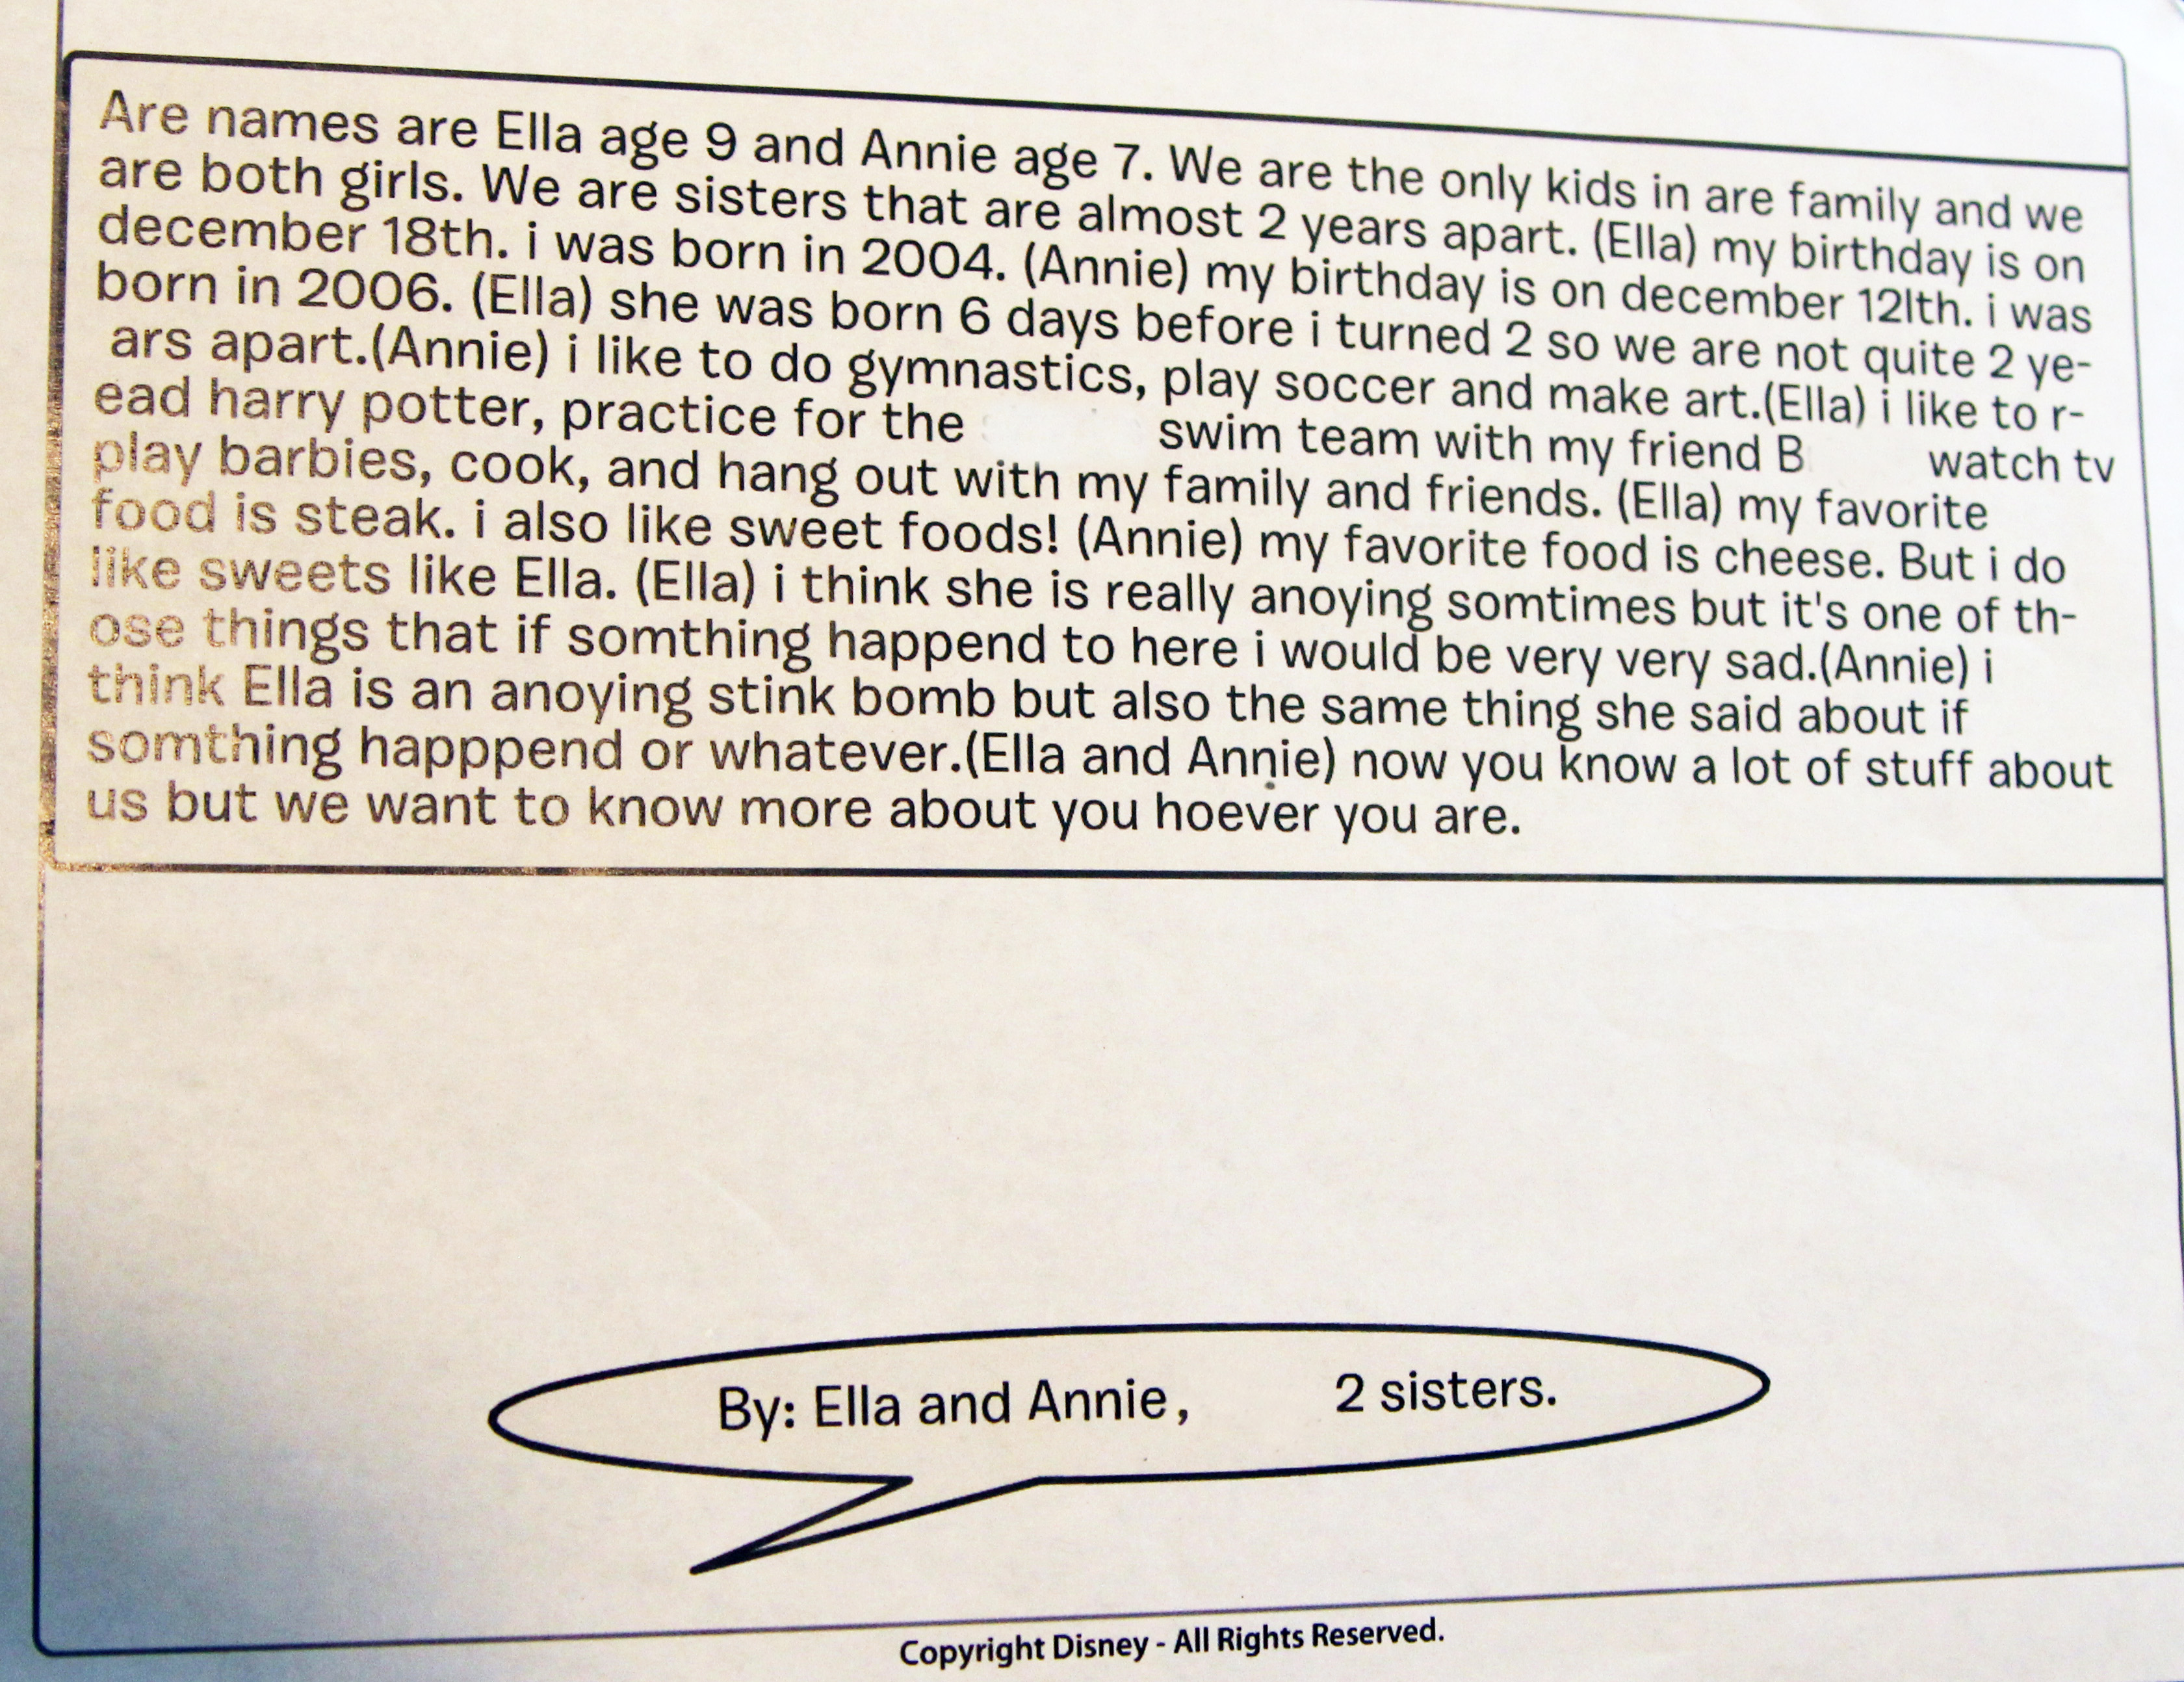 Are names are Ella age 9 and Annie age 7. We are the only kids in are family and we
are both girls. We are sisters that are almost 2 years apart. (Ella) my birthday is on
december 18th. i was born in 2004. (Annie) my birthday is on december 12lth. i was
born in 2006. (Ella) she was born 6 days before i turned 2 so we are not quite 2 ye-
ars apart.(Annie) i like to do gymnastics, play soccer and make art.(Ella) i like to r-
ead harry potter, practice for the swim team with my friend B watch tv
play barbies, cook, and hang out with my family and friends. (Ella) my favorite
food is steak. i also like sweet foods! (Annie) my favorite food is cheese. But i do
like sweets like Ella. (Ella) i think she is really anoying somtimes but it's one of th-
ose things that if somthing happend to here i would be very very sad.(Annie) i
think Ella is an anoying stink bomb but also the same thing she said about if
somthing happpend or whatever.(Ella and Annie) now you know a lot of stuff about
us but we want to know more about you hoever you are.
By: Ella and Annie, 2 sisters.
Copyright Disney - All Rights Reserved.